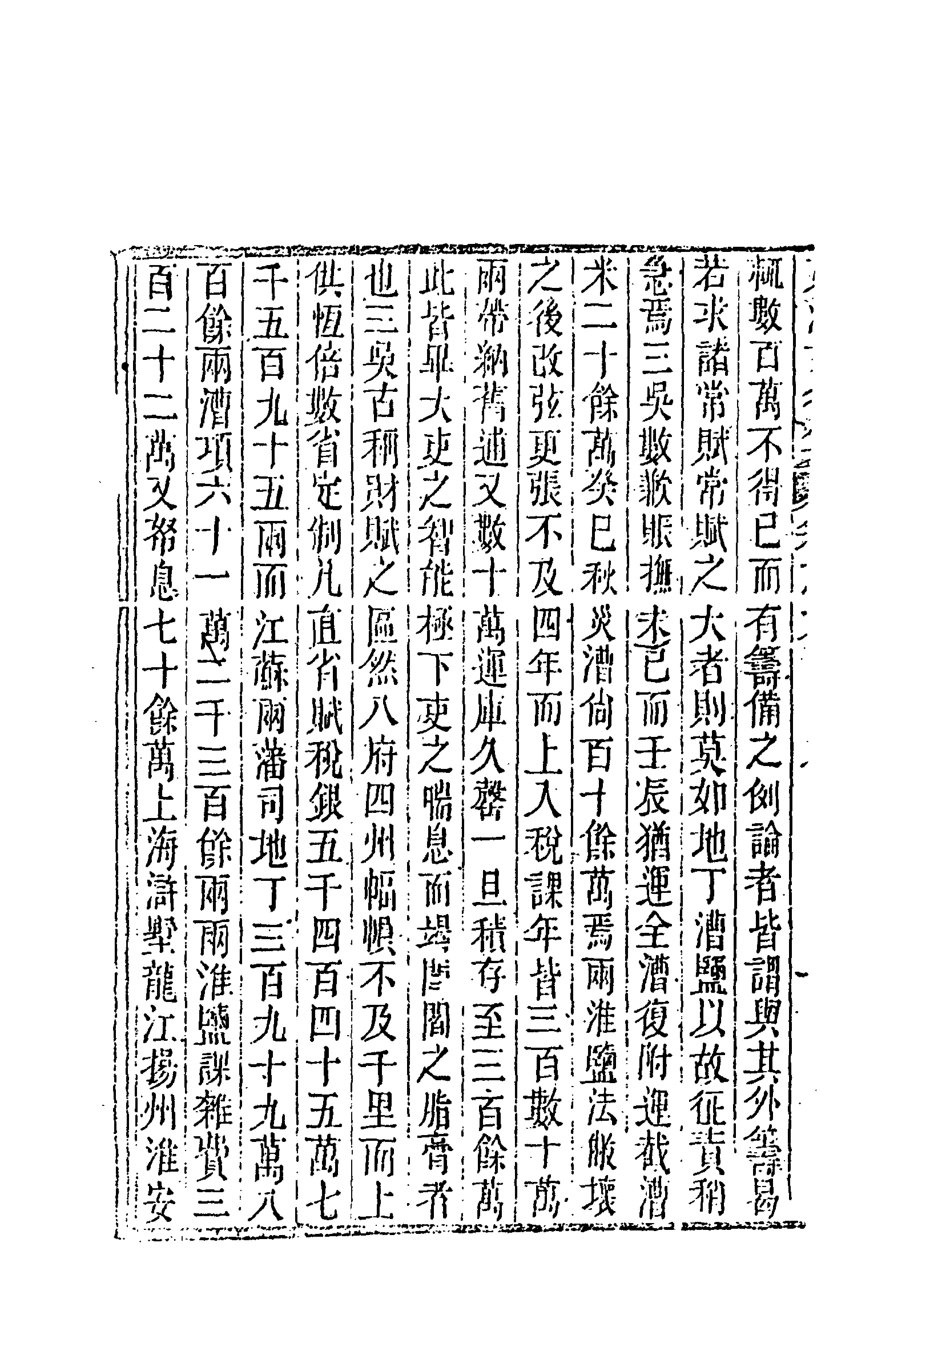 輒數百萬不得已而有籌備之例論者皆謂與其外籌曷
若求諸常賦常賦之大者則莫如地丁漕鹽以故征責稍
急焉三吳數歉賑撫未已而壬辰猶運全漕復附運截漕
米二十餘萬癸巳秋災漕尙百十餘萬焉兩淮鹽法敝壞
之後改弦更張不及四年而上入稅課年皆三百數十萬
兩帶納舊逋又數十萬運庫久罄一旦積存至三百餘萬
此皆畢大吏之智能極下吏之喘息而竭閭閻之脂膏者
也三吳古稱財賦之區然八府四州幅幀不及千里而上
供恆倍數省定制凡直省賦稅銀五千四百四十五萬七
千五百九十五兩而江蘇兩藩司地丁三百九十九萬八
百餘兩漕項六十一萬二千三百餘兩兩淮鹽課雜費三
百二十二萬又帑息七十餘萬上海滸墅龍江揚州淮安